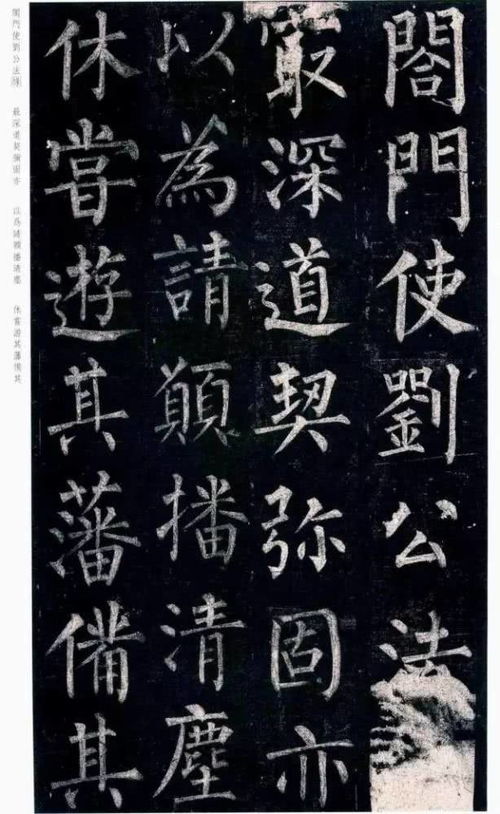 閤門使劉公法
冣深道契弥固亦
以為請願播清塵
休甞遊其藩備其
閤門使劉公法緣
最深道契彌固亦
以爲請願播清塵
休嘗游其藩備其